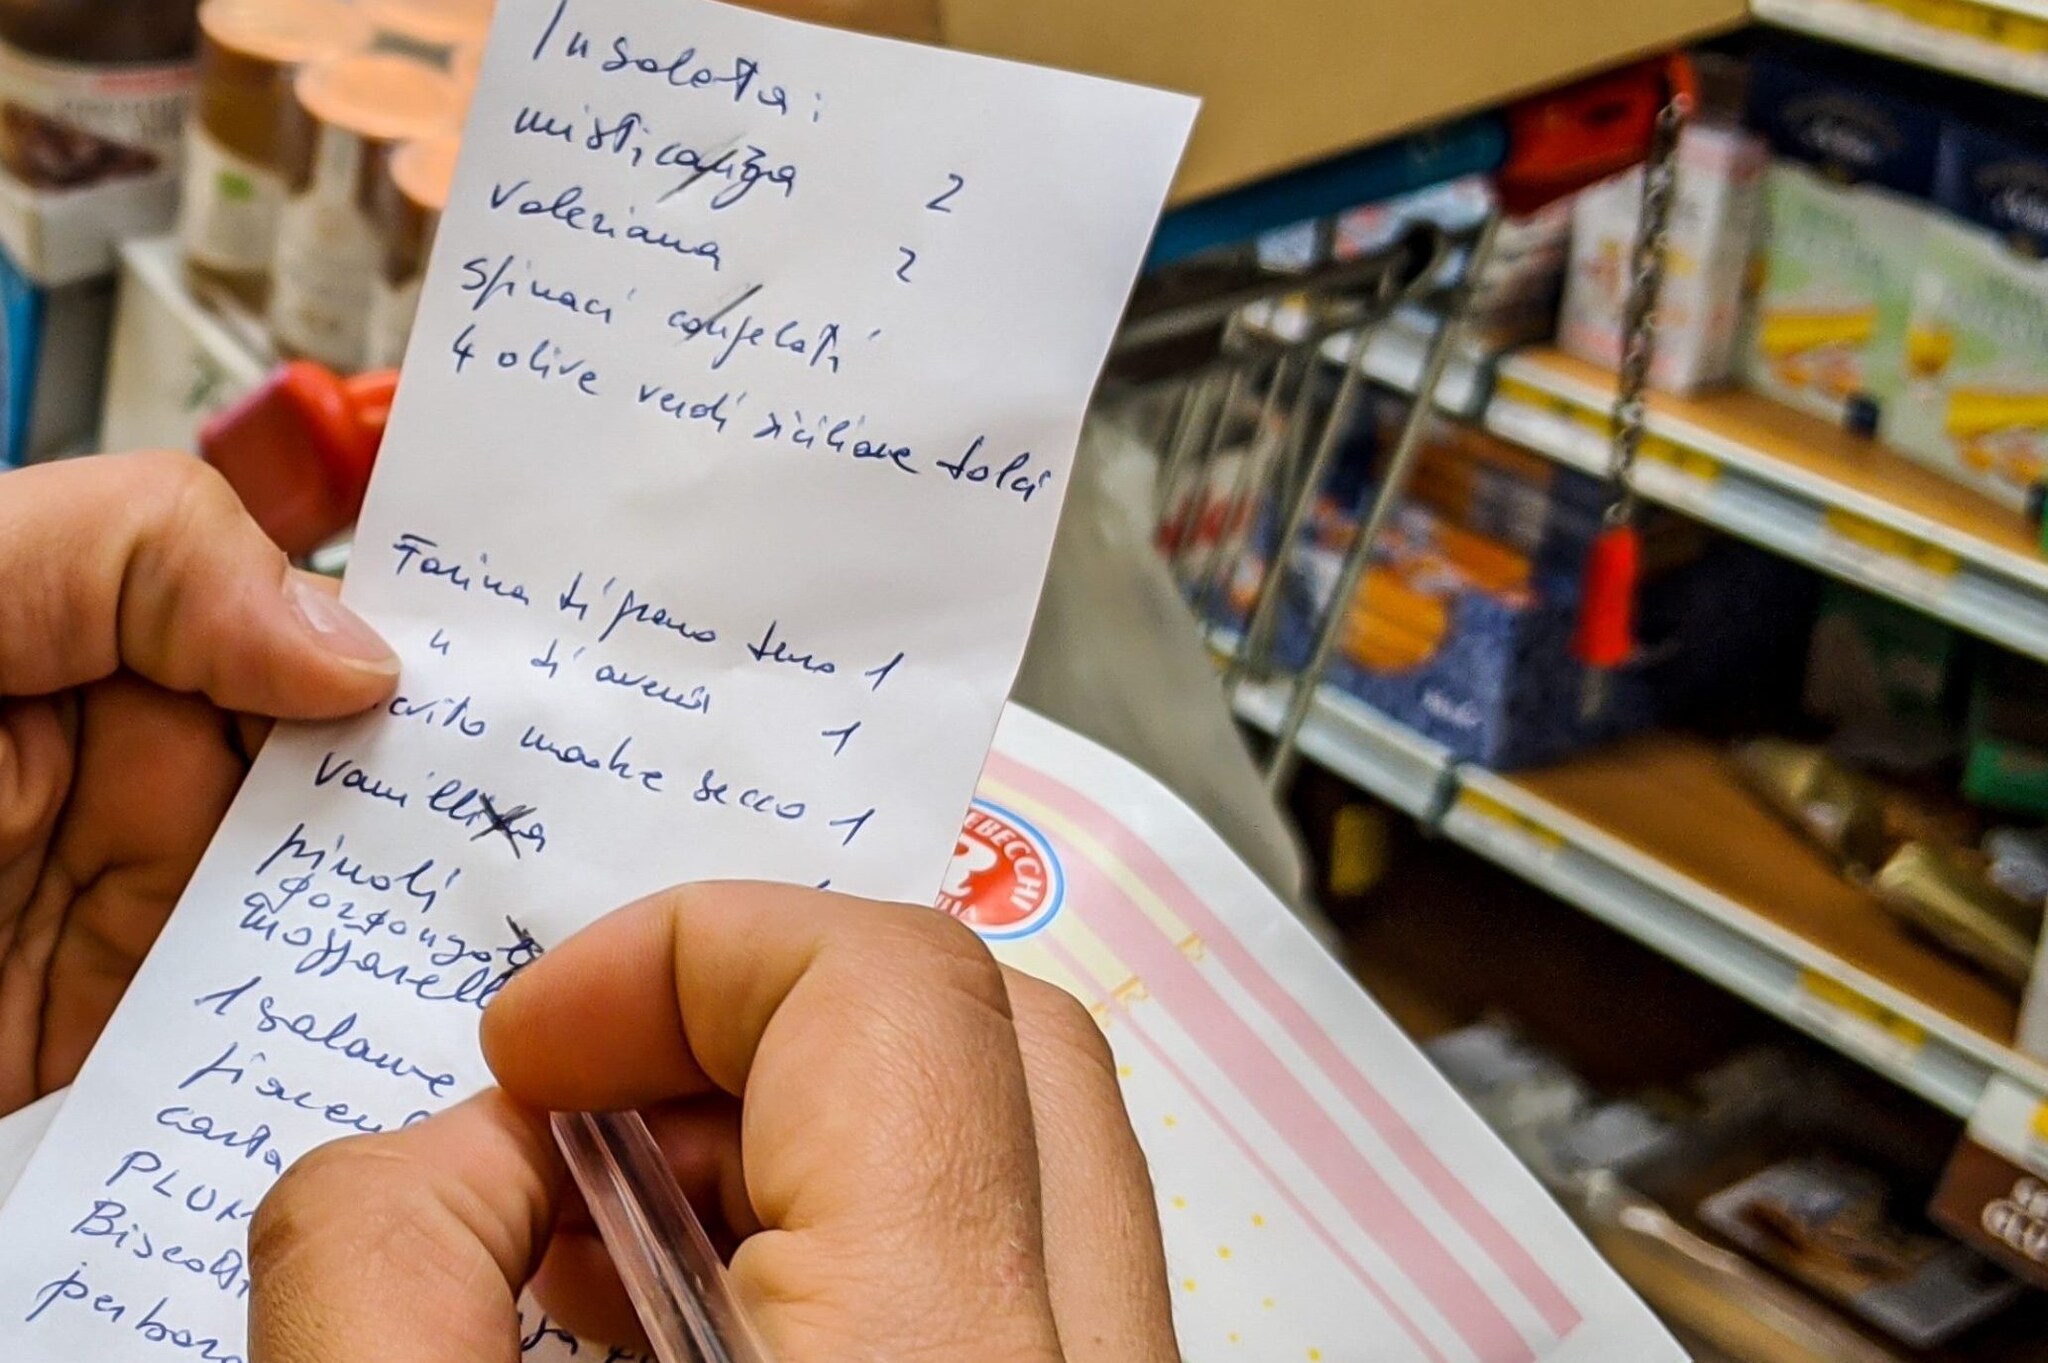 Insalata:
misticanza 2
Valeriana 2
Spinaci congelati
4 olive verdi siciliane dolci
Farina di grano duro 1
" di avena 1
madre secco 1
Vanillina
pinoli
gorgonzo
mozzarell
1 salame
carta
PLUM
Biscotti
perbor
EBECCHI